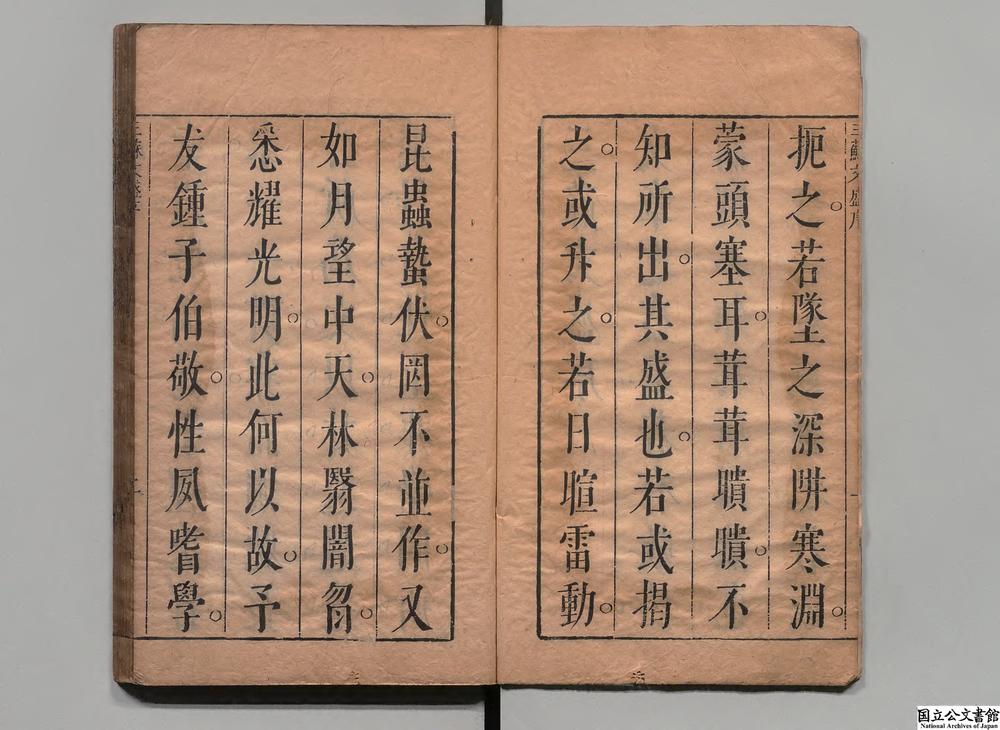 扼之若墜之深阱寒淵
蒙頭塞耳茸茸聵聵不
知所出其盛也若或揭
之或升之若日暄雷動
昆蟲蟄伏罔不並作又
如月望中天林翳闇曶
悉耀光明此何以故予
友鍾子伯敬性夙嗜學
国立公文書館
National Archives of Japan